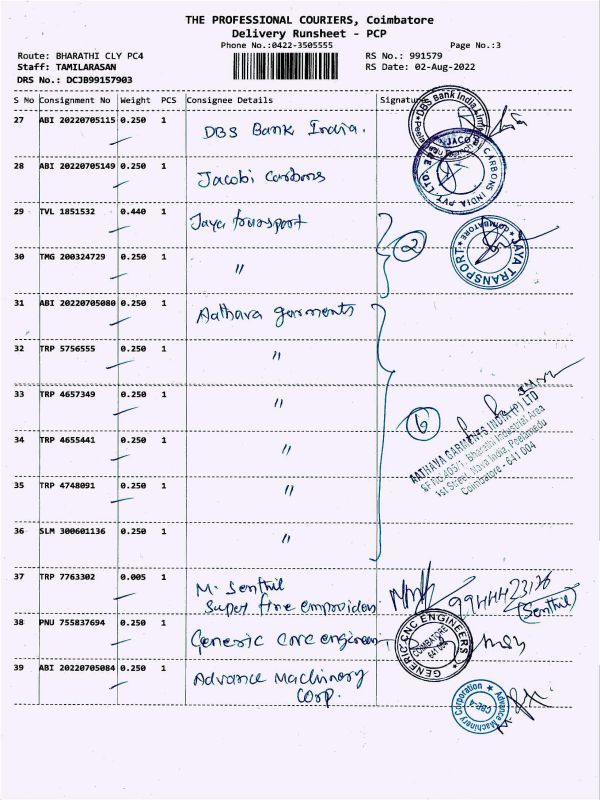 THE PROFESSIONAL COURIERS, Coimbatore
Delivery Runsheet - PCP
Phone No.:0422-3505555
Page No.:3
Route: BHARATHI CLY PC4
RS No.: 991579
Staff: TAMILARASAN
RS Date: 02-Aug-2022
DRS No.: DCJB99157903
S No Consignment No Weight PCS Consignee Details Signature
27 ABI 20220705115 0.250 1 DBS Bank India.
DBS Bank India
28 ABI 20220705149 0.250 1 Jacobi Carbons
JACOBI CARBONS INDIA PVT. LTD.
29 TVL 1851532 0.440 1 Jaya transport
2
JAYA TRANSPORT
COIMBATORE
30 TMG 200324729 0.250 1 "
31 ABI 20220705080 0.250 1 Aathava garments
32 TRP 5756555 0.250 1 "
33 TRP 4657349 0.250 1 "
6
AATHAVA GARMENTS INDIA (P) LTD
SF No:405/1, Bharathi Industrial Area
1st Street, Nava India, Peelamedu
Coimbatore - 641 004
34 TRP 4655441 0.250 1 "
35 TRP 4748091 0.250 1 "
36 SLM 300601136 0.250 1 "
37 TRP 7763302 0.005 1 M. Senthil
Super fine
(Senthil)
38 PNU 755837694 0.250 1 Generic cnc engineers
GENERIC CNC ENGINEERS
COIMBATORE
641 004
39 ABI 20220705084 0.250 1 Advance Machinery
Corp.
Advance Machinery Corporation
CBE-4